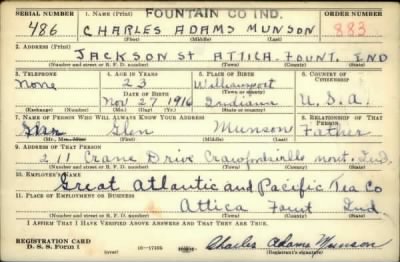 SERIAL NUMBER 1. NAME (Print) FOUNTAIN CO IND. ORDER NUMBER
486 CHARLES ADAMS MUNSON 883
(First) (Middle) (Last)
2. ADDRESS (Print)
JACKSON St ATTICA. FOUNT. IND
(Number and street or R. F. D. number) (Town) (County) (State)
3. TELEPHONE 4. AGE IN YEARS 5. PLACE OF BIRTH 6. COUNTRY OF CITIZENSHIP
None 23 Williamsport
DATE OF BIRTH (Town or county)
Nov 27 1916 Indiana U.S.A.
(Exchange) (Number) (Mo.) (Day) (Yr.) (State or country)
7. NAME OF PERSON WHO WILL ALWAYS KNOW YOUR ADDRESS 8. RELATIONSHIP OF THAT PERSON
Glen Munson Father
(Mr., Mrs., Miss) (First) (Middle) (Last)
9. ADDRESS OF THAT PERSON
211 Crane Drive Crawfordsville mont. Ind.
(Number and street or R. F. D. number) (Town) (County) (State)
10. EMPLOYER'S NAME
Great Atlantic and Pacific Tea Co
11. PLACE OF EMPLOYMENT OR BUSINESS
Attica Fount Ind.
(Number and street or R. F. D. number) (Town) (County) (State)
I AFFIRM THAT I HAVE VERIFIED ABOVE ANSWERS AND THAT THEY ARE TRUE.
REGISTRATION CARD
D. S. S. Form 1 16—17105 Charles Adams Munson
(Registrant's signature)